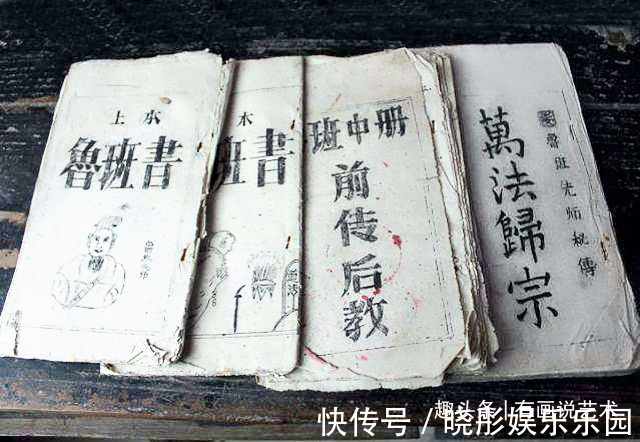 上本
魯班書
本
班書
班中册
前传后教
魯班先师秘傳
萬法歸宗
趣头条|有画说艺术
快传号 / 晓彤娱乐乐园